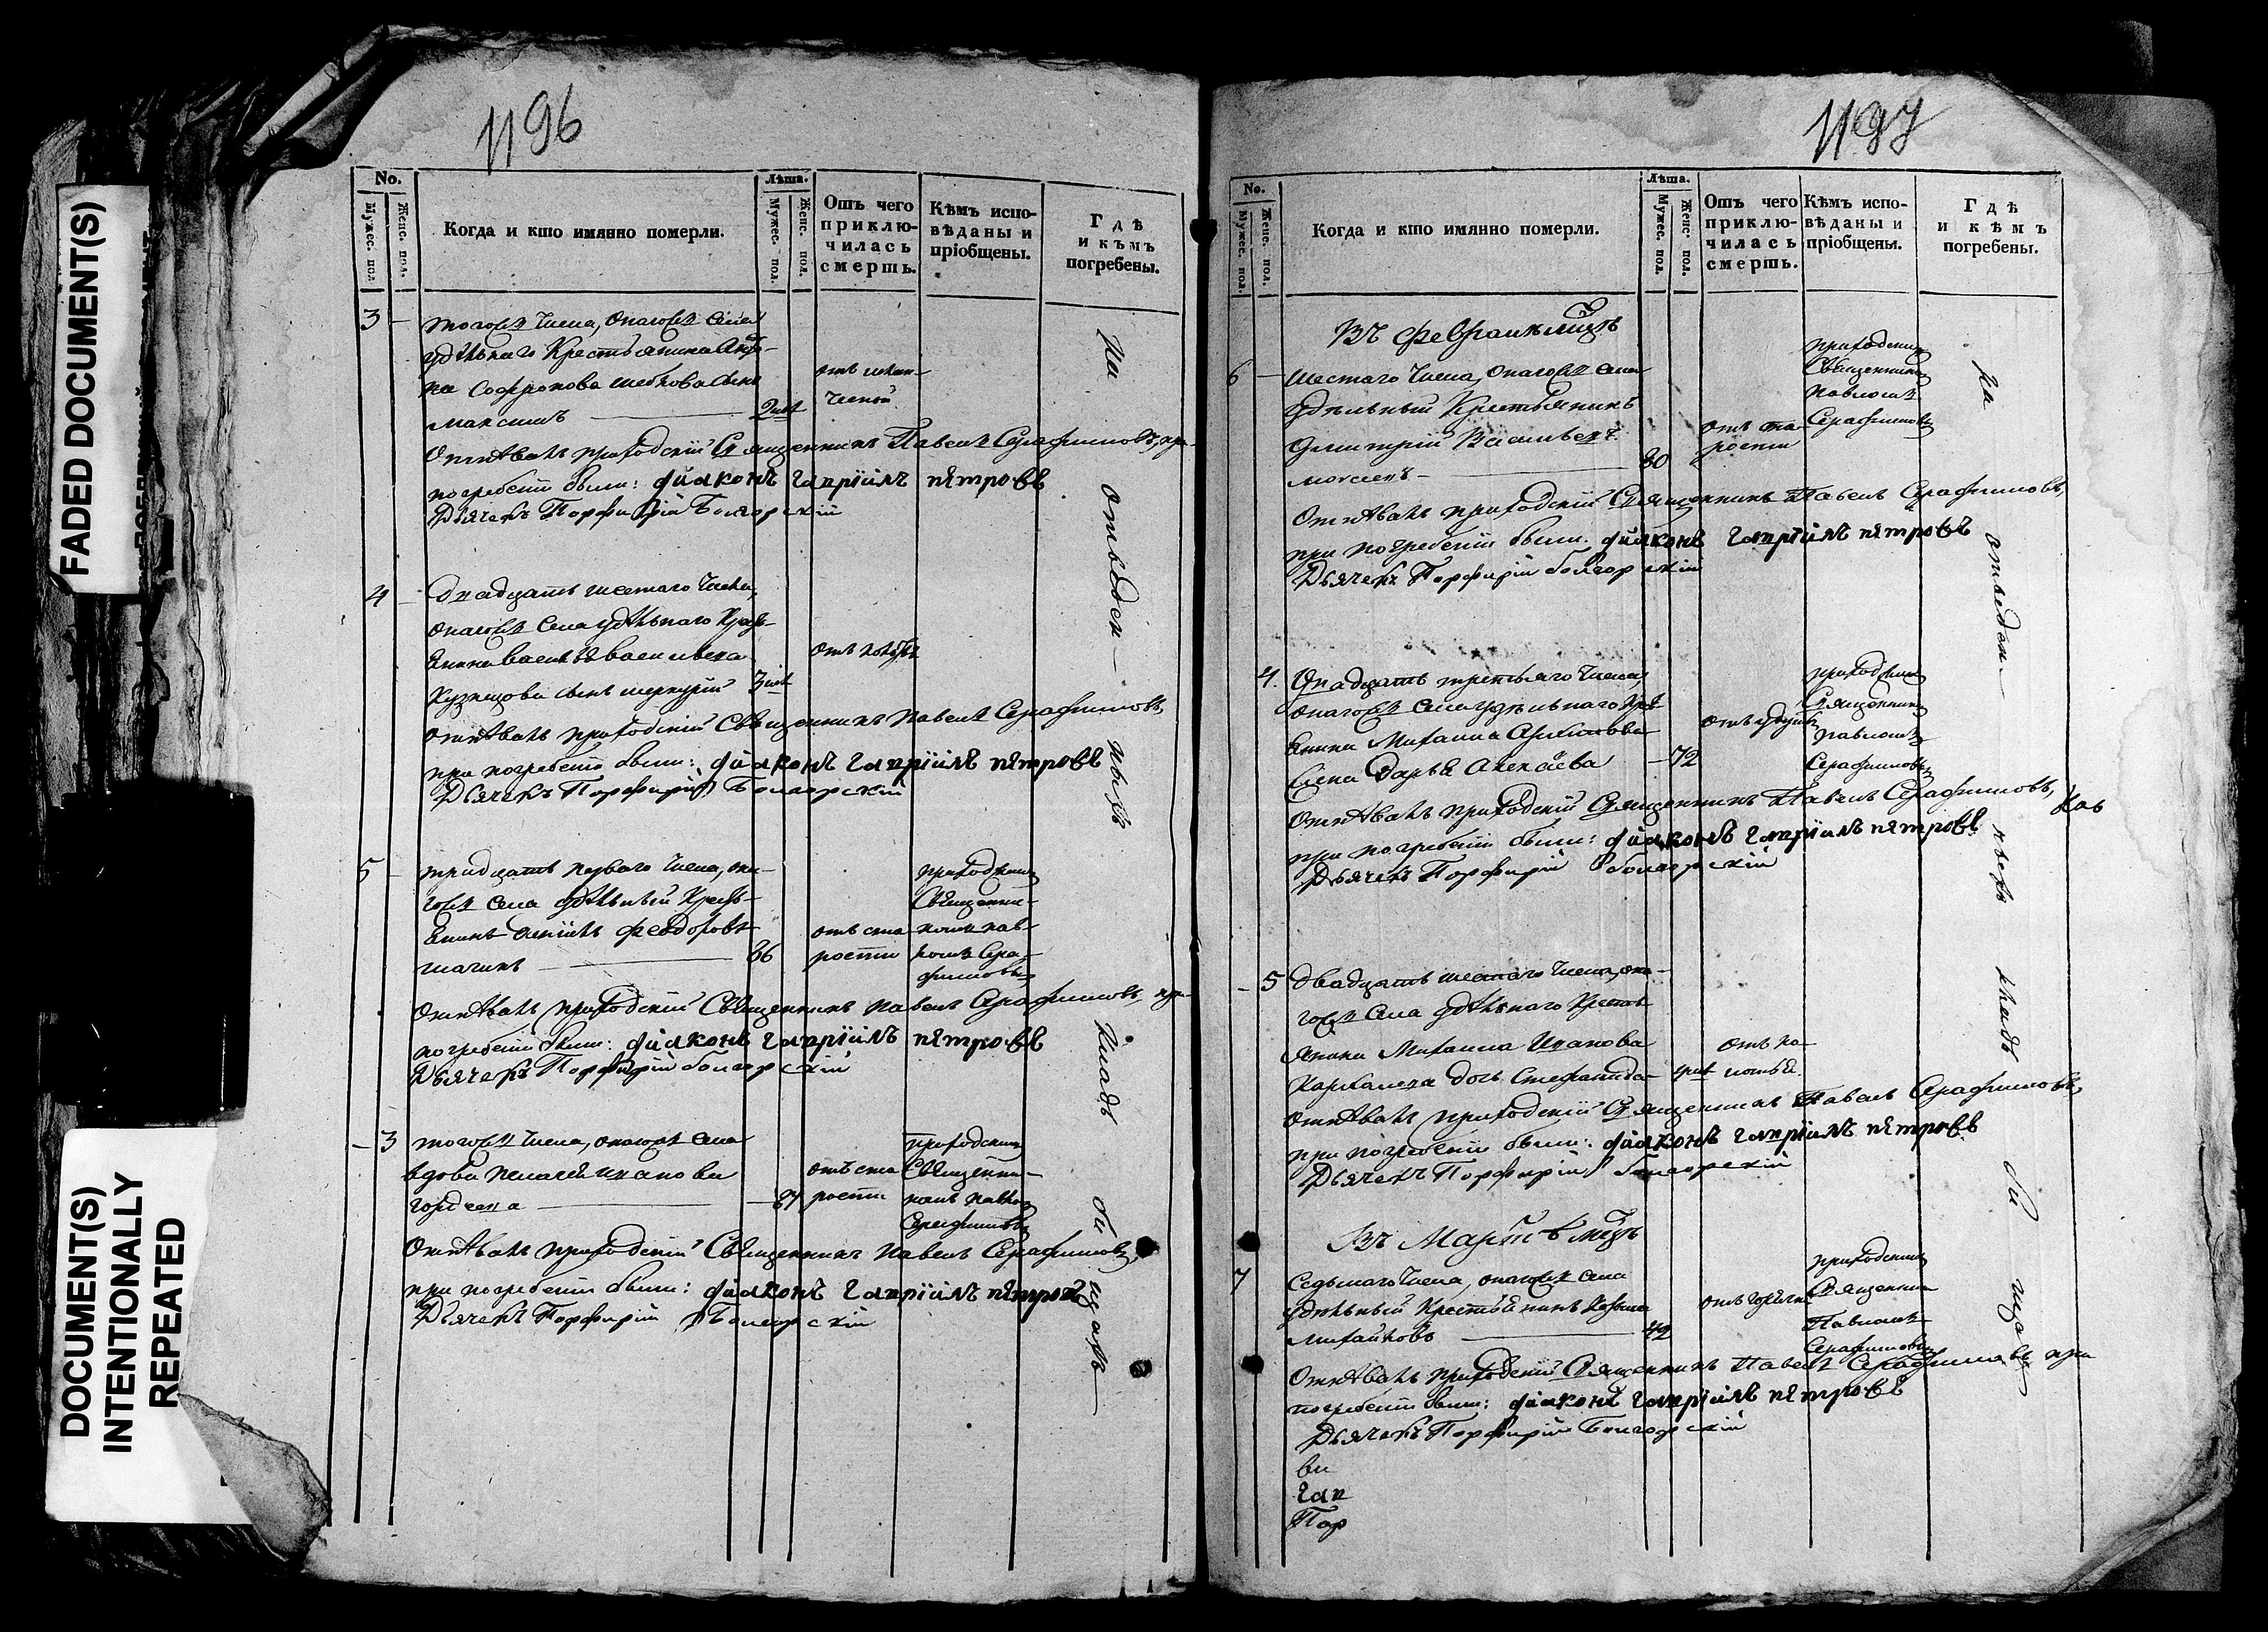 FADED DOCUMENT(S)
DOCUMENT(S)
INTENTIONALLY
REPEATED
1196
No.
Мужес. пол
Женс. пол.
Когда и кто имянно померли.
Лѣта.
Мужес. пол.
Женс. пол.
Отъ чего
приклю-
чилась
смерть.
Кѣмъ испо-
вѣданы и
пріобщены.
Гдѣ
и кѣмъ
погребены.
3 — тогожъ числа, онагожъ села
удѣльнаго крестьянина
Софронова сынъ
Максимъ —
отпѣвалъ приходскій Священникъ Павелъ Серафимовъ, при
погребеніи были: діаконъ гавріилъ пѣтровъ
Дьячекъ Порфирій Болгорскій
4 — Двадцать шестаго числа,
онагожъ села удѣльнаго крест-
янина Василья Васильева
Кузнецова сынъ меркурій
отпѣвалъ приходскій Священникъ Павелъ Серафимовъ,
при погребеніи были: діаконъ гавріилъ пѣтровъ
Дьячекъ Порфирій Болгорскій
5 — тридцать перваго числа, она-
гожъ села удѣльный крест-
янинъ феодоровъ
— 86
отъ ста
рости
приходскимъ
Священни-
комъ Пав-
ломъ Сера-
фимовымъ
отпѣвалъ приходскій Священникъ Павелъ Серафимовъ, при
погребеніи были: діаконъ гавріилъ пѣтровъ
Дьячекъ Порфирій болгорскій
— 3 тогожъ числа, онагожъ села
вдова Пелагея иванова
— 87
отъ ста
рости
приходскимъ
Священни-
комъ Павломъ
Серафимовымъ
отпѣвалъ приходскій Священникъ Павелъ Серафимовъ,
при погребеніи были: діаконъ гавріилъ пѣтровъ
Дьячекъ Порфирій Болгорскій
На отведен- номъ кладбищахъ
1197
No.
Мужес. пол.
Женс. пол.
Когда и кто имянно померли.
Лѣта.
Мужес. пол.
Женс. пол.
Отъ чего
приклю-
чилась
смерть.
Кѣмъ испо-
вѣданы и
пріобщены.
Гдѣ
и кѣмъ
погребены.
Въ Февралѣ мцѣ
6 — шестаго числа, онагожъ села
удѣльный крестьянинъ
Димитрій Васильевъ
— 80
отъ ста-
рости
приходскимъ
Священникомъ
Павломъ
Серафимовымъ
Отпѣвалъ приходскій Священникъ Павелъ Серафимовъ,
при погребеніи были: діаконъ гавріилъ пѣтровъ
Дьячекъ Порфирій болгорскій
4. Двадцать третьяго числа,
онагожъ села удѣльнаго крест
янина Михаила
жена Дарья Алексѣева — 72
приходскимъ
Священникомъ
Павломъ
Серафимовымъ
Отпѣвалъ приходскій Священникъ Павелъ Серафимовъ,
при погребеніи были: діаконъ гавріилъ пѣтровъ
Дьячекъ Порфирій болгорскій
— 5 двадцать шестаго числа, она-
гожъ села удѣльнаго крестъ
янина Михаила Иванова
дочь Стефанида
Отпѣвалъ приходскій Священникъ Павелъ Серафимовъ,
при погребеніи были: діаконъ гавріилъ пѣтровъ
Дьячекъ Порфирій болгорскій
Въ Мартѣ мцѣ
7 Седьмаго числа, онагожъ села
удѣльный крестьянинъ Козьма
Михайловъ — 42
отъ горячки
приходскимъ
Священни
Павломъ
Серафимовымъ
Отпѣвалъ приходскій Священникъ Павелъ Серафимовъ при
погребеніи были: діаконъ гавріилъ пѣтровъ
Дьячекъ Порфирій Болгорскій
ва
гав
Пор
На отведен- номъ кладбищахъ